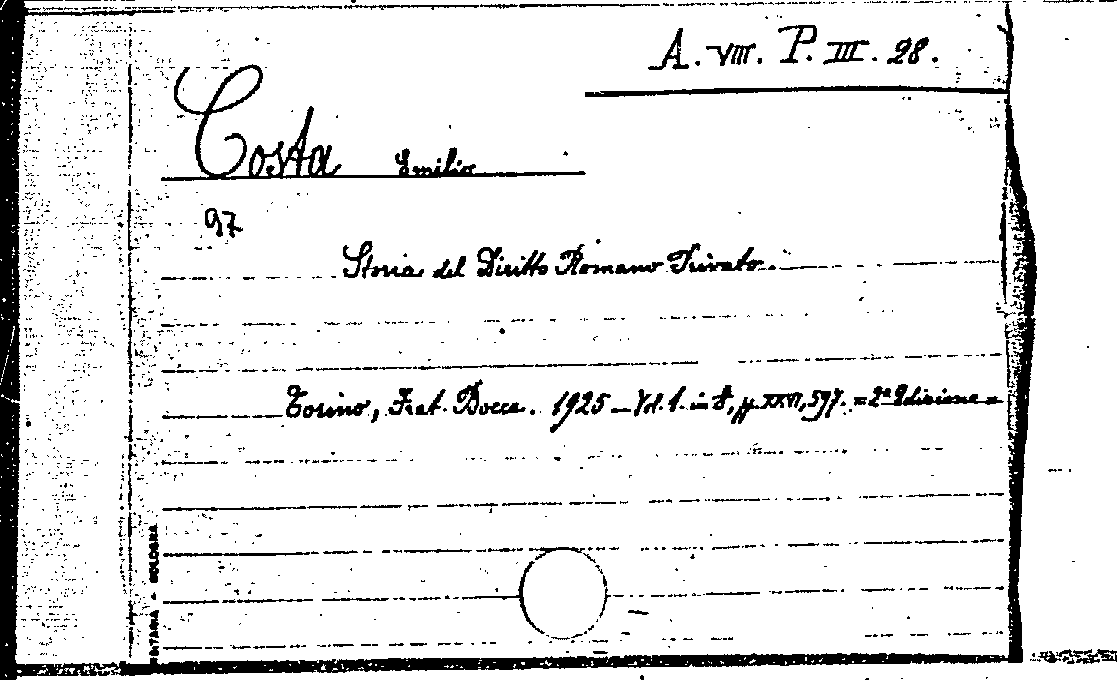 A. VIII. P. III. 28.
Costa Emilio
97
Storia del Diritto Romano Privato.
Torino, Frat. Bocca. 1925 - Vol. 1. in 8, pp. XXVI, 597. = 2ª Edizione =
BOLOGNA